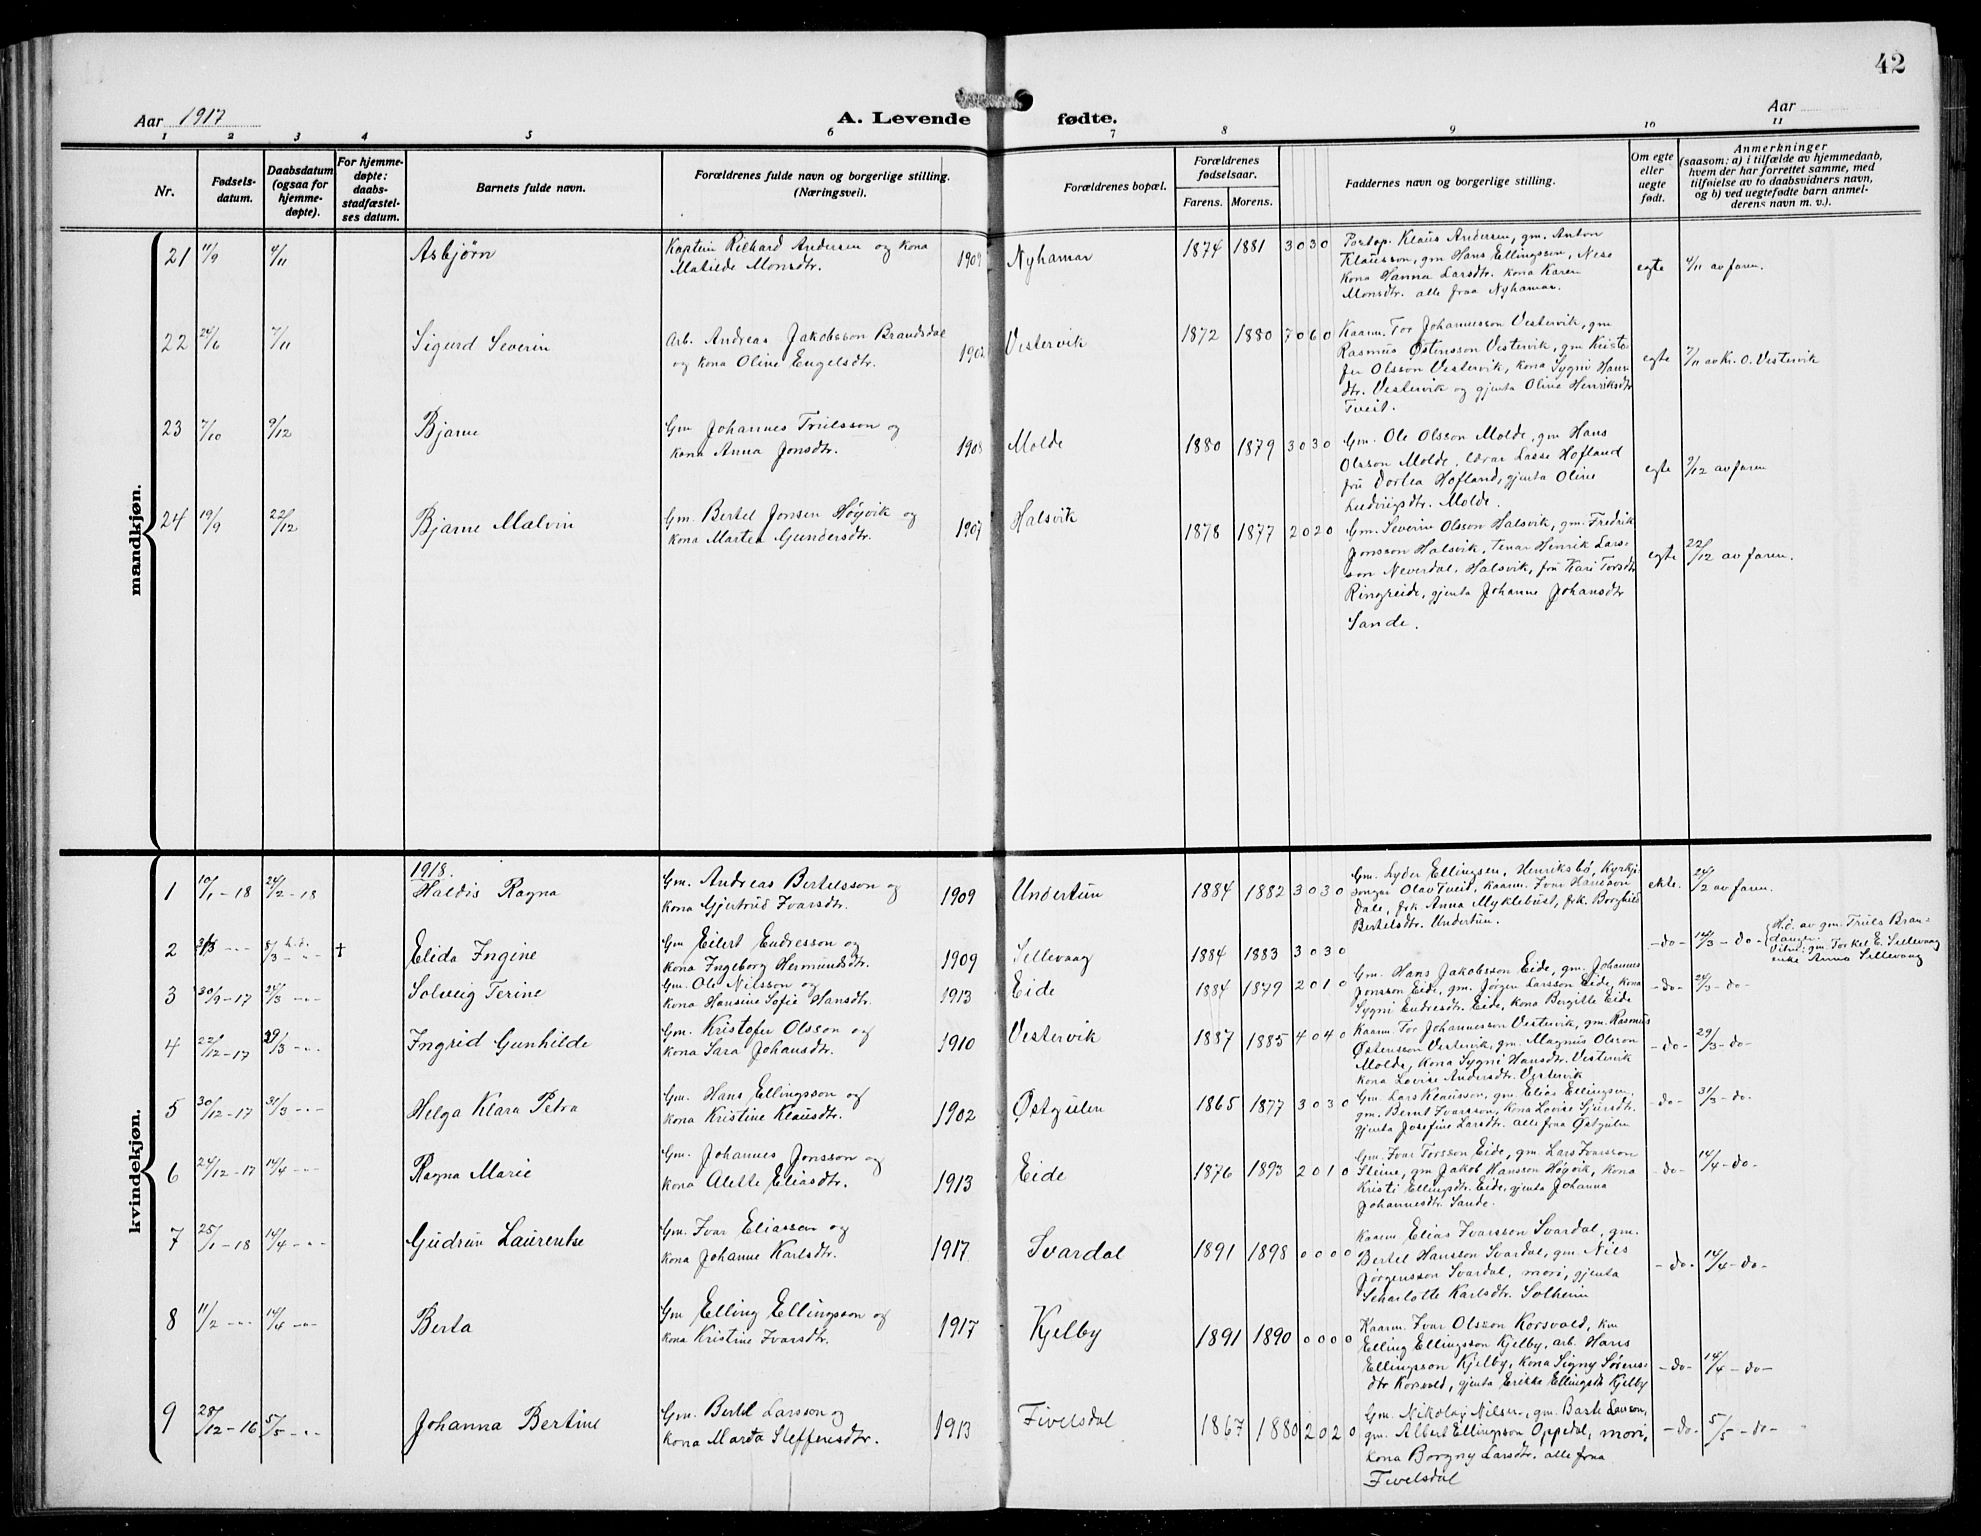 42
Aar 1917
A. Levende fødte.
Aar
1 2 3 4 5 6 7 8 9 10 11
Nr.
Fødsels-
datum.
Daabsdatum
(ogsaa for
hjemme-
døpte).
For hjemme-
døpte:
daabs-
stadfæstel-
ses datum.
Barnets fulde navn.
Forældrenes fulde navn og borgerlige stilling.
(Næringsvei).
Forældrenes bopæl.
Forældrenes
fødselsaar.
Farens. Morens.
Faddernes navn og borgerlige stilling.
Om egte
eller
uegte
født.
Anmerkninger
(saasom: a) i tilfælde av hjemmedaab,
hvem der har forrettet samme, med
tilføielse av to daabsvidners navn,
og b) ved uegtefødte barn anmel-
derens navn m. v.).
mandkjøn.
21 11/9 4/11 Asbjørn
Kaptein Rikhard Andersen og kona
Matilde Monsdtr. 1909
Nyhamar 1874 1881 3 0 3 0
Postop. Klaus Andersen, gm. Anton
Klausson, gm Hans Ellingssen, Nese
kona Hanna Larsdtr. kona Karen
Monsdtr. alle fraa Nyhamar.
egte 4/11 av faren.
22 24/6 7/11 Sigurd Severin
Arb. Andreas Jakobsson Brandsdal
og kona Oline Engelsdtr. 1902
Vestervik 1872 1880 7 0 6 0
Kaarm. Tor Johannesson Vestervik, gm
Rasmus Østensson Vestervik, gm Kristo-
fer Olsson Vestervik, kona Sygni Hans
dtr. Vestervik og gjenta Olina Henriksdtr
Tveit.
egte 7/11 av Kr. O. Vestervik
23 7/10 9/12 Bjarne
Gm Johannes Trulsson og
kona Anna Jonsdtr. 1908
Molde 1880 1879 3 0 3 0
Gm. Ole Olsson Molde, gm Hans
Olsson Molde, lærar Lasse Hofland
frú Dortea Hofland, gjenta Oline
Ludvigsdtr. Molde.
egte 9/12 av faren
24 19/9 22/12 Bjarne Malvin
Gm. Bertel Jonsen Høyvik og
kona Martea Gundersdtr. 1907
Halsvik 1878 1877 2 0 2 0
Gm. Severin Olsson Halsvik, gm. Fredrik
Jonsson Halsvik, tenar Henrik Lars-
son Neverdal, Halsvik, frú Kari Torsdtr
Ringreide, gjenta Johanne Johansdtr
Sande.
egte 22/12 av faren.
kvindekjøn.
1918.
1 10/1-18 24/2-18 Haldis Ragna
Gm. Andreas Bertelsson og
kona Gjertrud Ivarsdtr. 1909
Undertun 1884 1882 3 0 3 0
Gm. Lyder Ellingsen, Henriksbø, Kyrkje-
songar Olav Tveit, kaarm. Ivar Hansson
Dale, frk Anna Myklebust, frk. Borghild
Bertelsdtr. Undertun.
ekte. 24/2 av faren.
2 8/3 h.d. † Elida Ingine
Gm Eilert Endresson og
kona Ingeborg Hermundsdtr. 1909
Sillevaag 1884 1883 3 0 3 0
-do- 14/3 - do-
H.d. av gm. Truls Bran-
danger.
Vitne: gm. Torkel E. Sillevaag
enke Anna Sillevaag
3 30/9-17 24/3 -"- Solveig Terine
Gm. Ole Nilsson og
kona Hansine Sofie Hansdtr. 1913
Eide 1884 1879 2 0 1 0
Gm. Hans Jakobsson Eide, gm. Johannes
Jonsson Eide, gm. Jørgen Larsson Eide, kona
Sygni Endresdtr. Eide, kona Bergitte Eide
-do- 24/3 -do-
4 22/12-17 29/3 -"- Ingrid Gunhilde
Gm. Kristofer Olsson og
kona Sara Johansdtr. 1910
Vestervik 1887 1885 4 0 4 0
Kaarm. Tor Johannesson Vestervik, gm. Rasmus
Østensson Vestervik, gm. Magnus Olsson
Molde, kona Sygni Hansdtr. Vestervik
kona Lovise Andersdtr. Vestervik
-do- 29/3 -do-
5 30/12-17 31/3 -"- Helga Klara Petra
Gm. Hans Ellingsson og
kona Kristine Klausdtr. 1902
Østgulen 1865 1877 3 0 3 0
Gm. Lars Klausson, gm. Elias Ellingsen,
gm. Bernt Ivarsson, kona Lovise Sjursdtr.
gjenta Josefine Larsdtr. alle fraa Østgulen
-do- 31/3 -do-
6 24/12-17 14/4 -"- Ragna Marie
Gm. Johannes Jonsson og
kona Alette Eliasdtr. 1913
Eide 1876 1893 2 0 1 0
Gm. Ivar Torsson Eide, gm. Lars Ivarsson
Steine, gm Jakob Hansson Høyvik, kona
Kristi Ellingsdtr. Eide, gjenta Johanna
Johannesdtr. Sande.
-do- 14/4 -do-
7 25/1-18 14/4 -"- Gudrun Laurentse
Gm. Ivar Eliassen og
kona Johanne Karlsdtr. 1917
Svardal 1891 1898 0 0 0 0
Kaarm Elias Ivarssen Svardal, gm.
Bertel Hansson Svardal, gm. Nils
Jørgensson Svardal, mori, gjenta
Scharlotte Karlsdtr. Solheim
-do- 14/4 -do-
8 11/2 -"- 14/4 -"- Berta
Gm Elling Ellingsson og
kona Kristine Ivarsdtr. 1917
Kjelby 1891 1890 0 0 0 0
Kaarm. Ivar Olsson Korsvold, km
Elling Ellingsson Kjelby, arb. Hans
Ellingsson Kjelby, kona Signy Sørens-
dtr Korsvold, gjenta Erikke Ellingsdtr Kjelby
-do- 14/4 - do-
9 28/12-16 5/5 -"- Johanna Bertine
Gm. Bertel Larsson og
kona Marta Steffensdtr. 1913
Fivelsdal 1867 1880 2 0 2 0
Gm. Nikolai Nilsen, gm. Larsson,
gm. Albert Ellingson Oppedal, mori,
kona Borgny Larsdtr. alle fraa
Fivelsdal
-do- 5/5 -do-